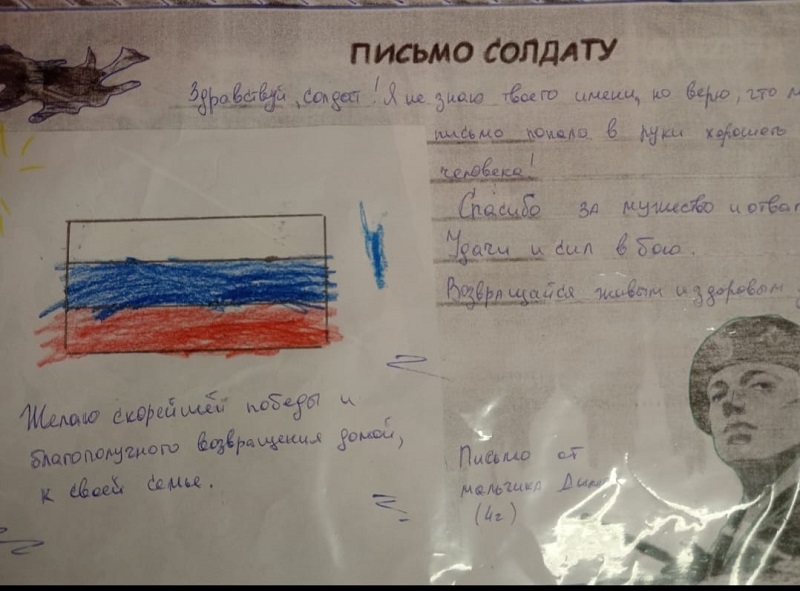 ПИСЬМО СОЛДАТУ
Здравствуй, солдат! Я не знаю твоего имени, но верю, что
письмо попало в руки хорошего
человека!
Спасибо за мужество и
Удачи и сил в бою.
Возвращайся живым и здоровым
Желаю скорейшей победы и
благополучного возвращения домой,
к своей семье.
Письмо от
мальчика
(4г)